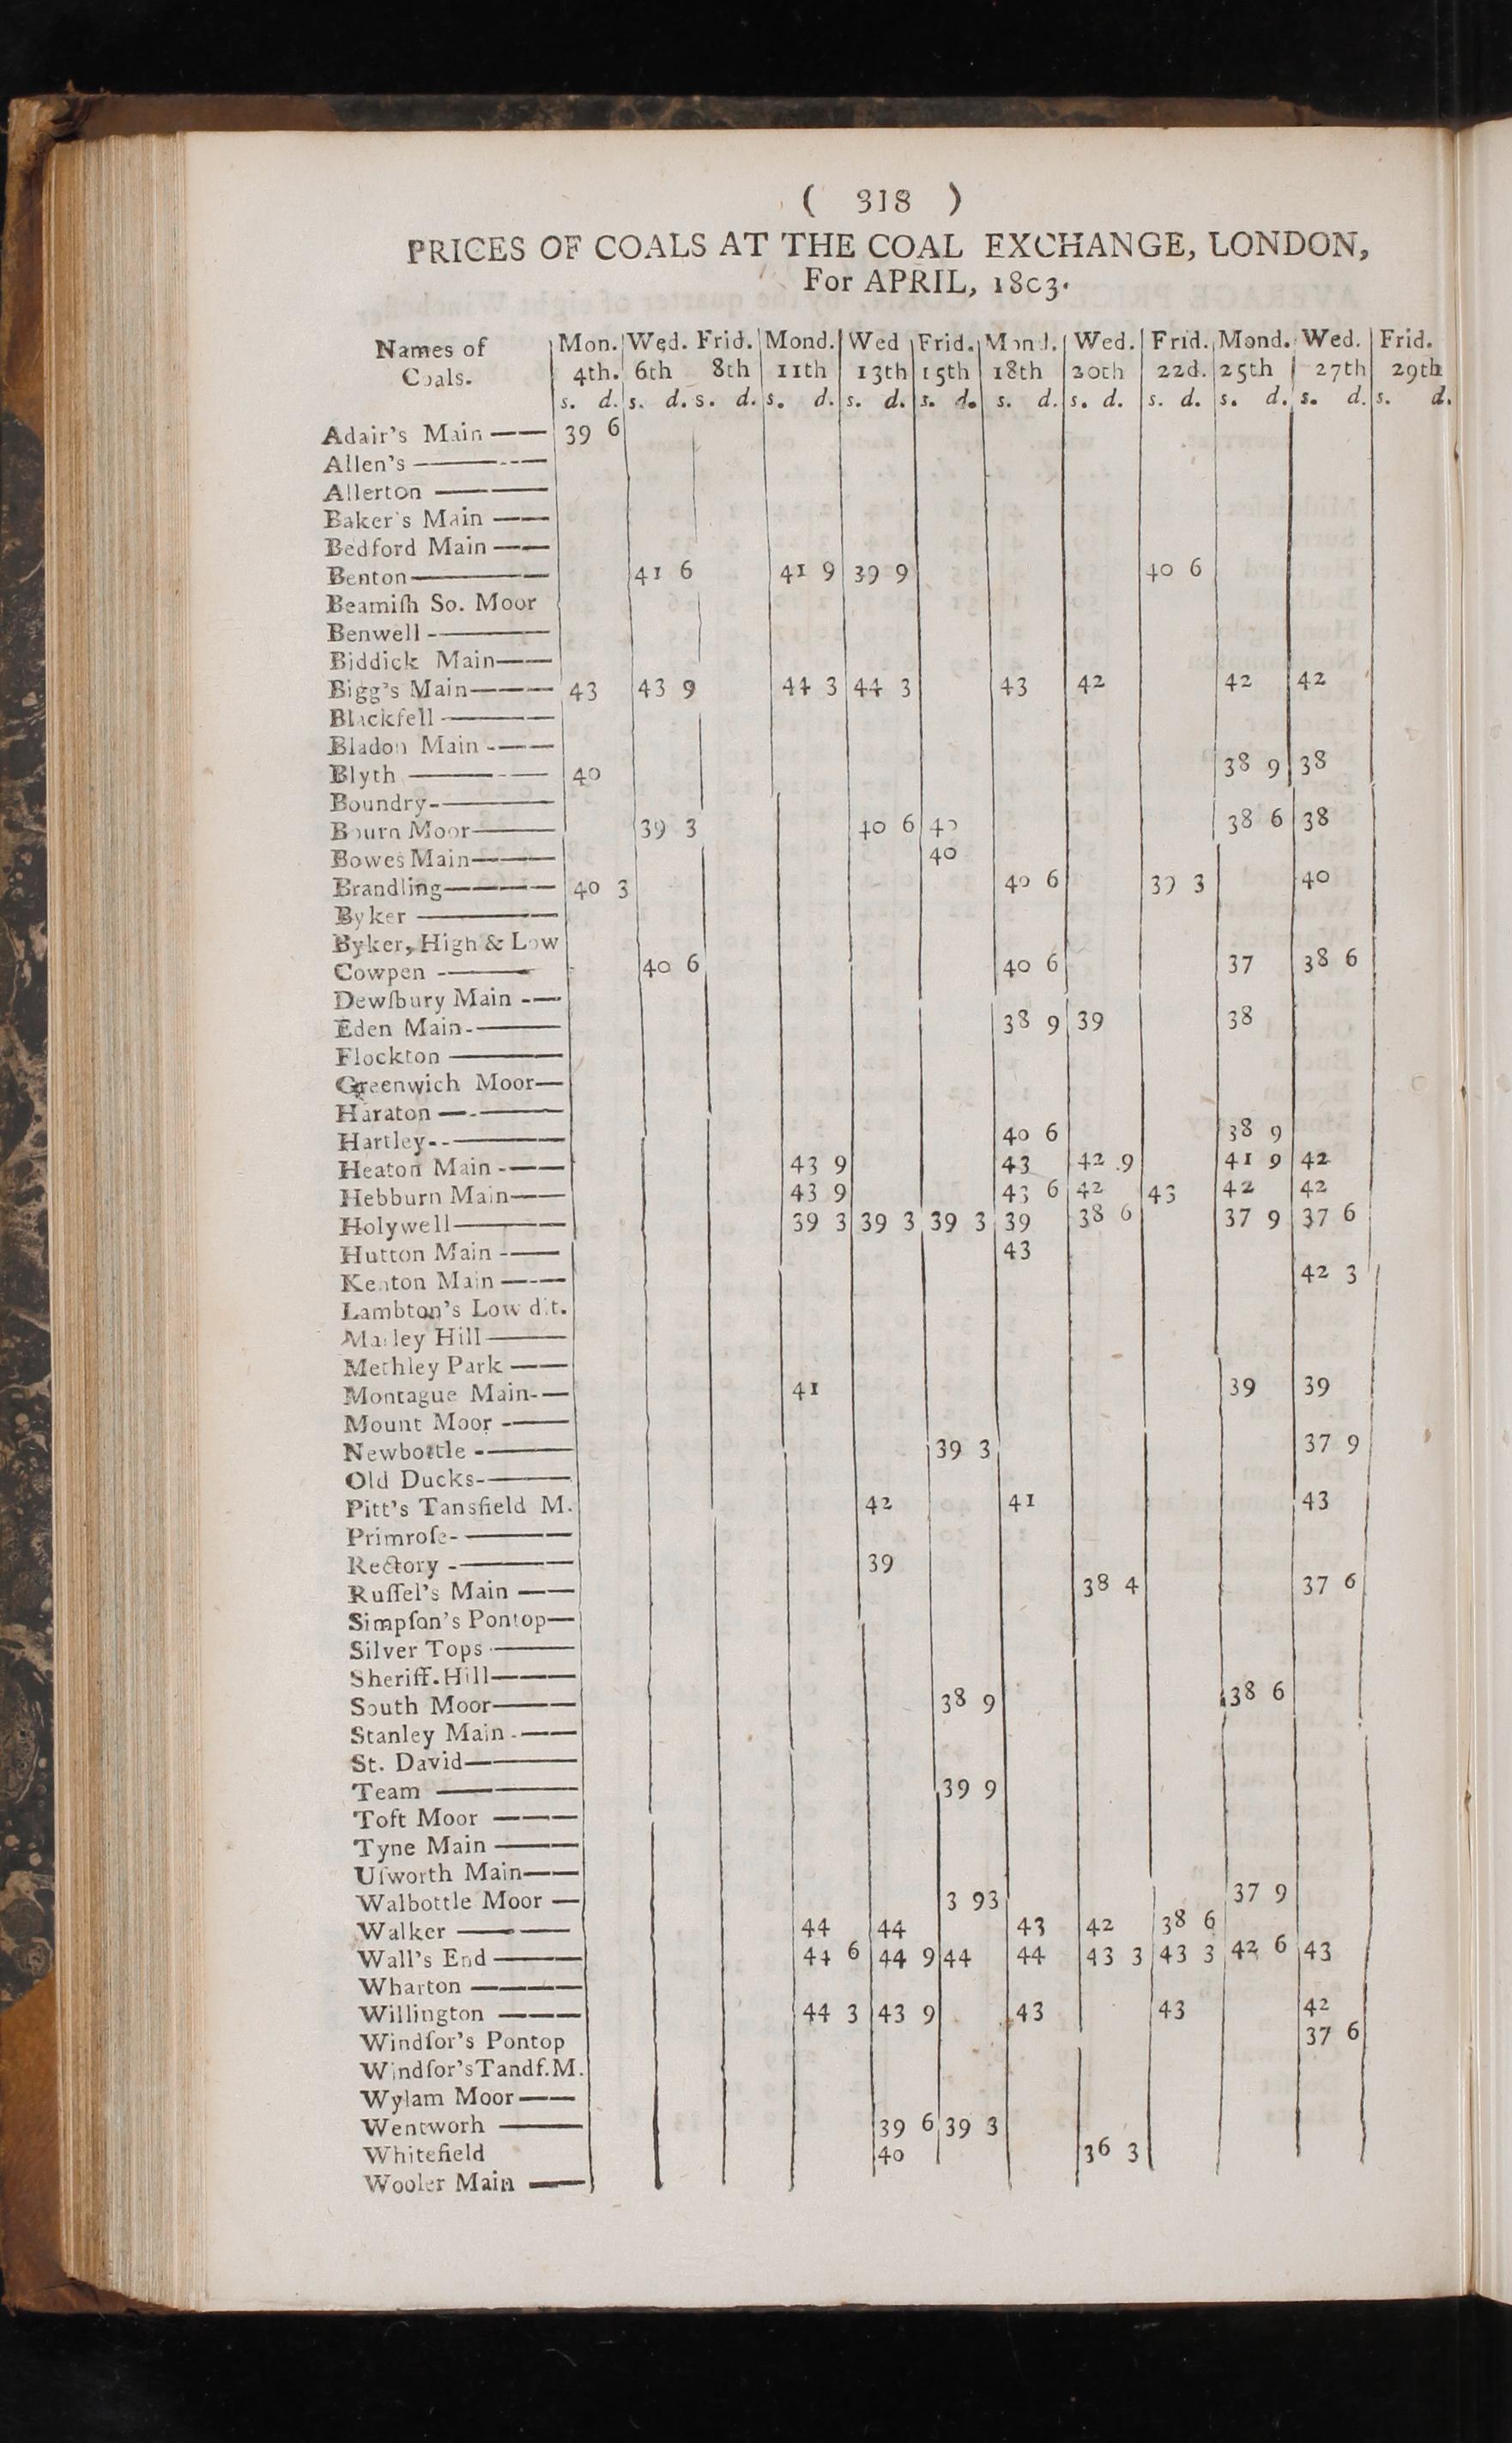 ( 318 )
PRICES OF COALS AT THE COAL EXCHANGE, LONDON,
For APRIL, 1803.
Names of Coals. Mon. 4th. Wed. 6th Frid. 8th Mond. 11th Wed 13th Frid. 15th Mond. 18th Wed. 20th Frid. 22d. Mond. 25th Wed. 27th Frid. 29th
s. d. s. d. s. d. s. d. s. d. s. d. s. d. s. d. s. d. s. d. s. d. s. d.
Adair's Main —— 39 6
Allen's ———
Allerton ———
Baker's Main ——
Bedford Main ——
Benton——— 41 6 41 9 39 9 40 6
Beamiſh So. Moor
Benwell - ———
Biddick Main——
Bigg's Main——— 43 43 9 44 3 44 3 43 42 42 42
Blackfell ———
Bladon Main -——
Blyth ——— 40 38 9 38
Boundry-———
Bourn Moor——— 39 3 40 6 40 38 6 38
Bowes Main——— 40
Brandling——— 40 3 40 6 39 3 40
Byker ———
Byker, High & Low
Cowpen -——— 40 6 40 6 37 38 6
Dewſbury Main -—
Eden Main-——— 38 9 39 38
Flockton ———
Greenwich Moor—
Haraton —-———
Hartley--——— 40 6 38 9
Heaton Main -—— 43 9 43 42 9 41 9 42
Hebburn Main—— 43 9 43 6 42 43 42 42
Holywell——— 39 3 39 3 39 3 39 38 6 37 9 37 6
Hutton Main -—— 43
Kenton Main —-— 42 3
Lambton's Low dit.
Marley Hill———
Methley Park ——
Montague Main-— 41 39 39
Mount Moor -——
Newbottle -——— 39 3 37 9
Old Ducks-———
Pitt's Tansfield M. 42 41 43
Primroſe-———
Rectory -——— 39
Ruſſel's Main —— 38 4 37 6
Simpſon's Pontop—
Silver Tops ———
Sheriff.Hill———
South Moor——— 38 9 38 6
Stanley Main -——
St. David———
Team ——— 39 9
Toft Moor ———
Tyne Main ———
Uſworth Main——
Walbottle Moor — 3 93 37 9
Walker ——— 44 44 43 42 38 6
Wall's End ——— 44 6 44 9 44 44 43 3 43 3 42 6 43
Wharton ———
Willington ——— 44 3 43 9 43 43 42
Windſor's Pontop 37 6
Windſor'sTandf.M.
Wylam Moor——
Wentworh ——— 39 6 39 3
Whitefield 40 36 3
Wooler Main ——